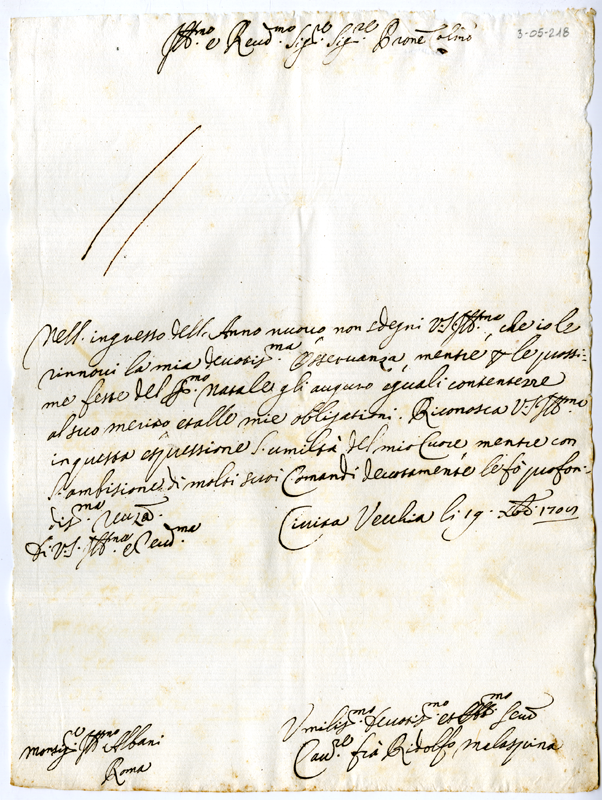 Ill.mo e Reud.mo Sig.re Sig.re Prone Colmo
3-05-218
Nell' ingresso dell' Anno nuouo non sdegni V.S. Ill.ma, che io le
rinnoui la mia deuotis.ma Osseruanza, mentre p le prossi-
me feste del SS.mo Natale gli auguro eguali contentezze
al suo merito et alle mie obligationi. Riconosca V.S. Ill.ma
in questa espressione l'umiltà del mio Cuore mentre con
l'ambisione di molti suoi Comandi deuotamente le fò profon-
dis.ma Reuza.
Di V.S. Ill.ma e Reud.ma
Ciuita Vecchia li 19
Monsig.re Ill.mo Albani
Roma
Vmilis.mo Deuotis.mo et Obb.mo Seru
Cau.re frà Ridolfo Malaspina